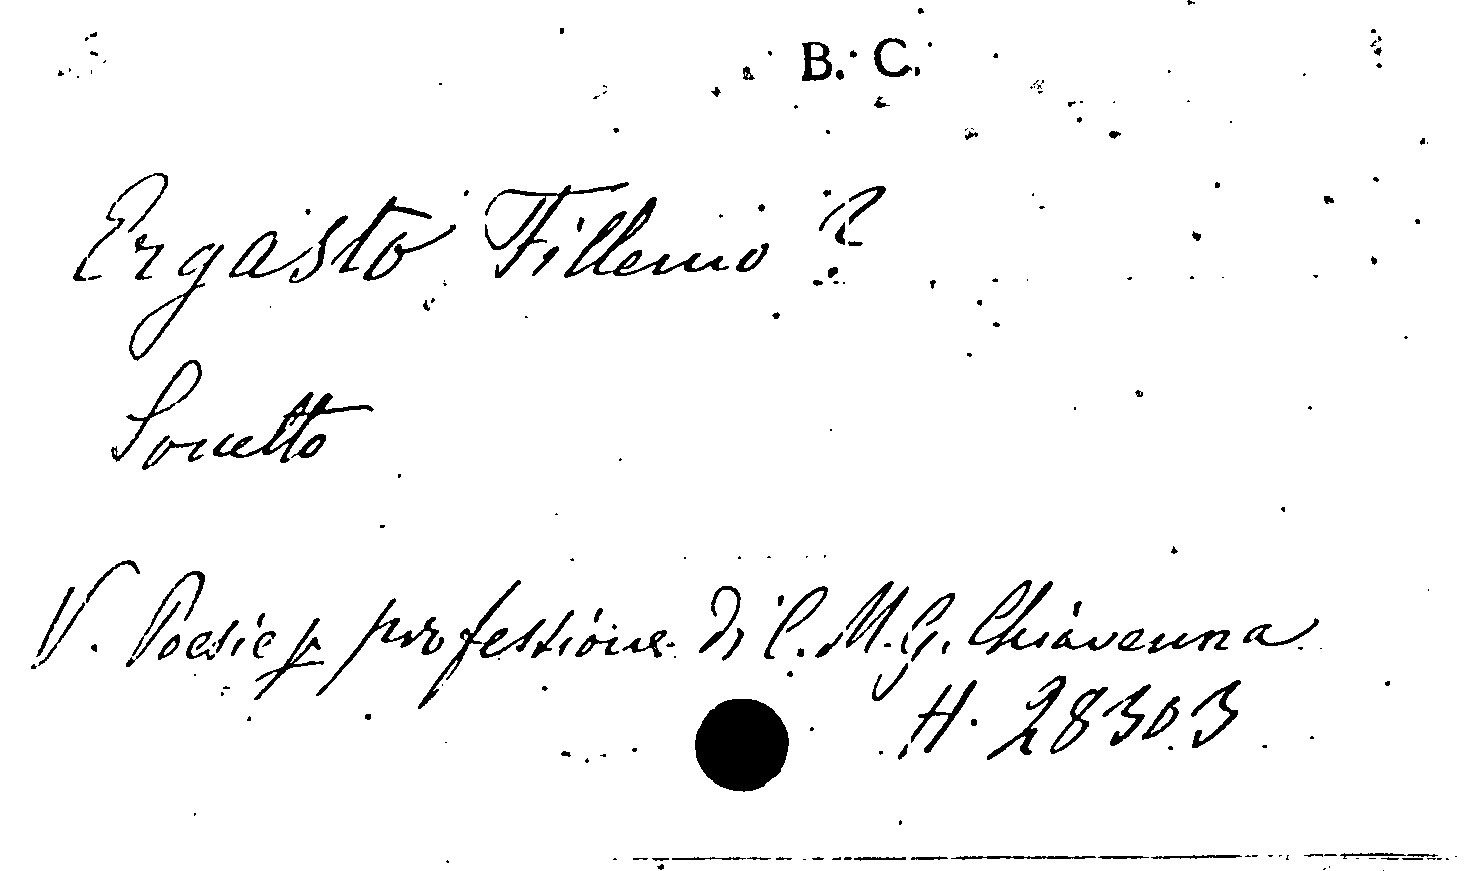 B. C.
Ergasto Fillenio ?
Sonetto
V. Poesie p professione di C. M. G. Chiavenna
H. 28303